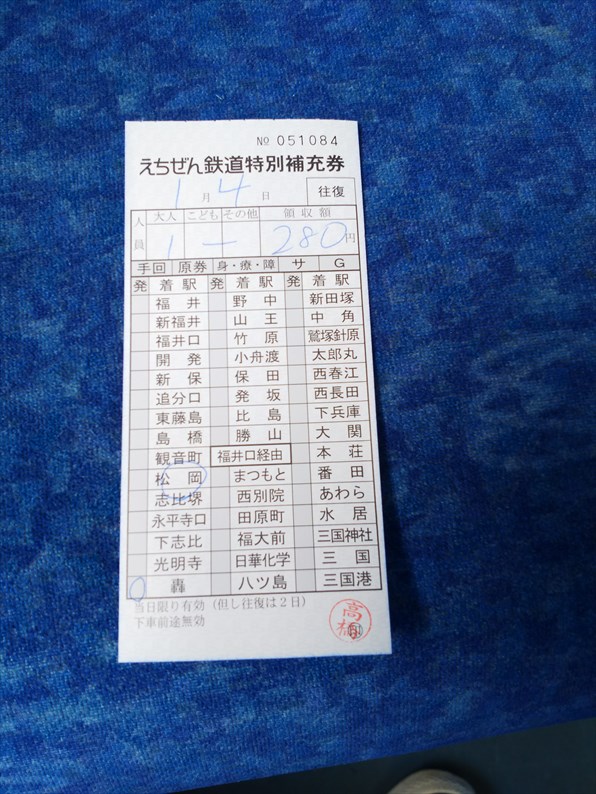 № 051084
えちぜん鉄道特別補充券
1月4日 往復
人員 大人 こども その他 領収額
1 ー 280円
手回 原券 身・療・障 サ G
発 着駅 発 着駅 発 着駅
福井 野中 新田塚
新福井 山王 中角
福井口 竹原 鷲塚針原
開発 小舟渡 太郎丸
新保 保田 西春江
追分口 発坂 西長田
東藤島 比島 下兵庫
島橋 勝山 大関
観音町 福井口経由 本荘
松岡 まつもと 番田
志比堺 西別院 あわら
永平寺口 田原町 水居
下志比 福大前 三国神社
光明寺 日華化学 三国
轟 八ツ島 三国港
当日限り有効(但し往復は2日)
下車前途無効
高橋